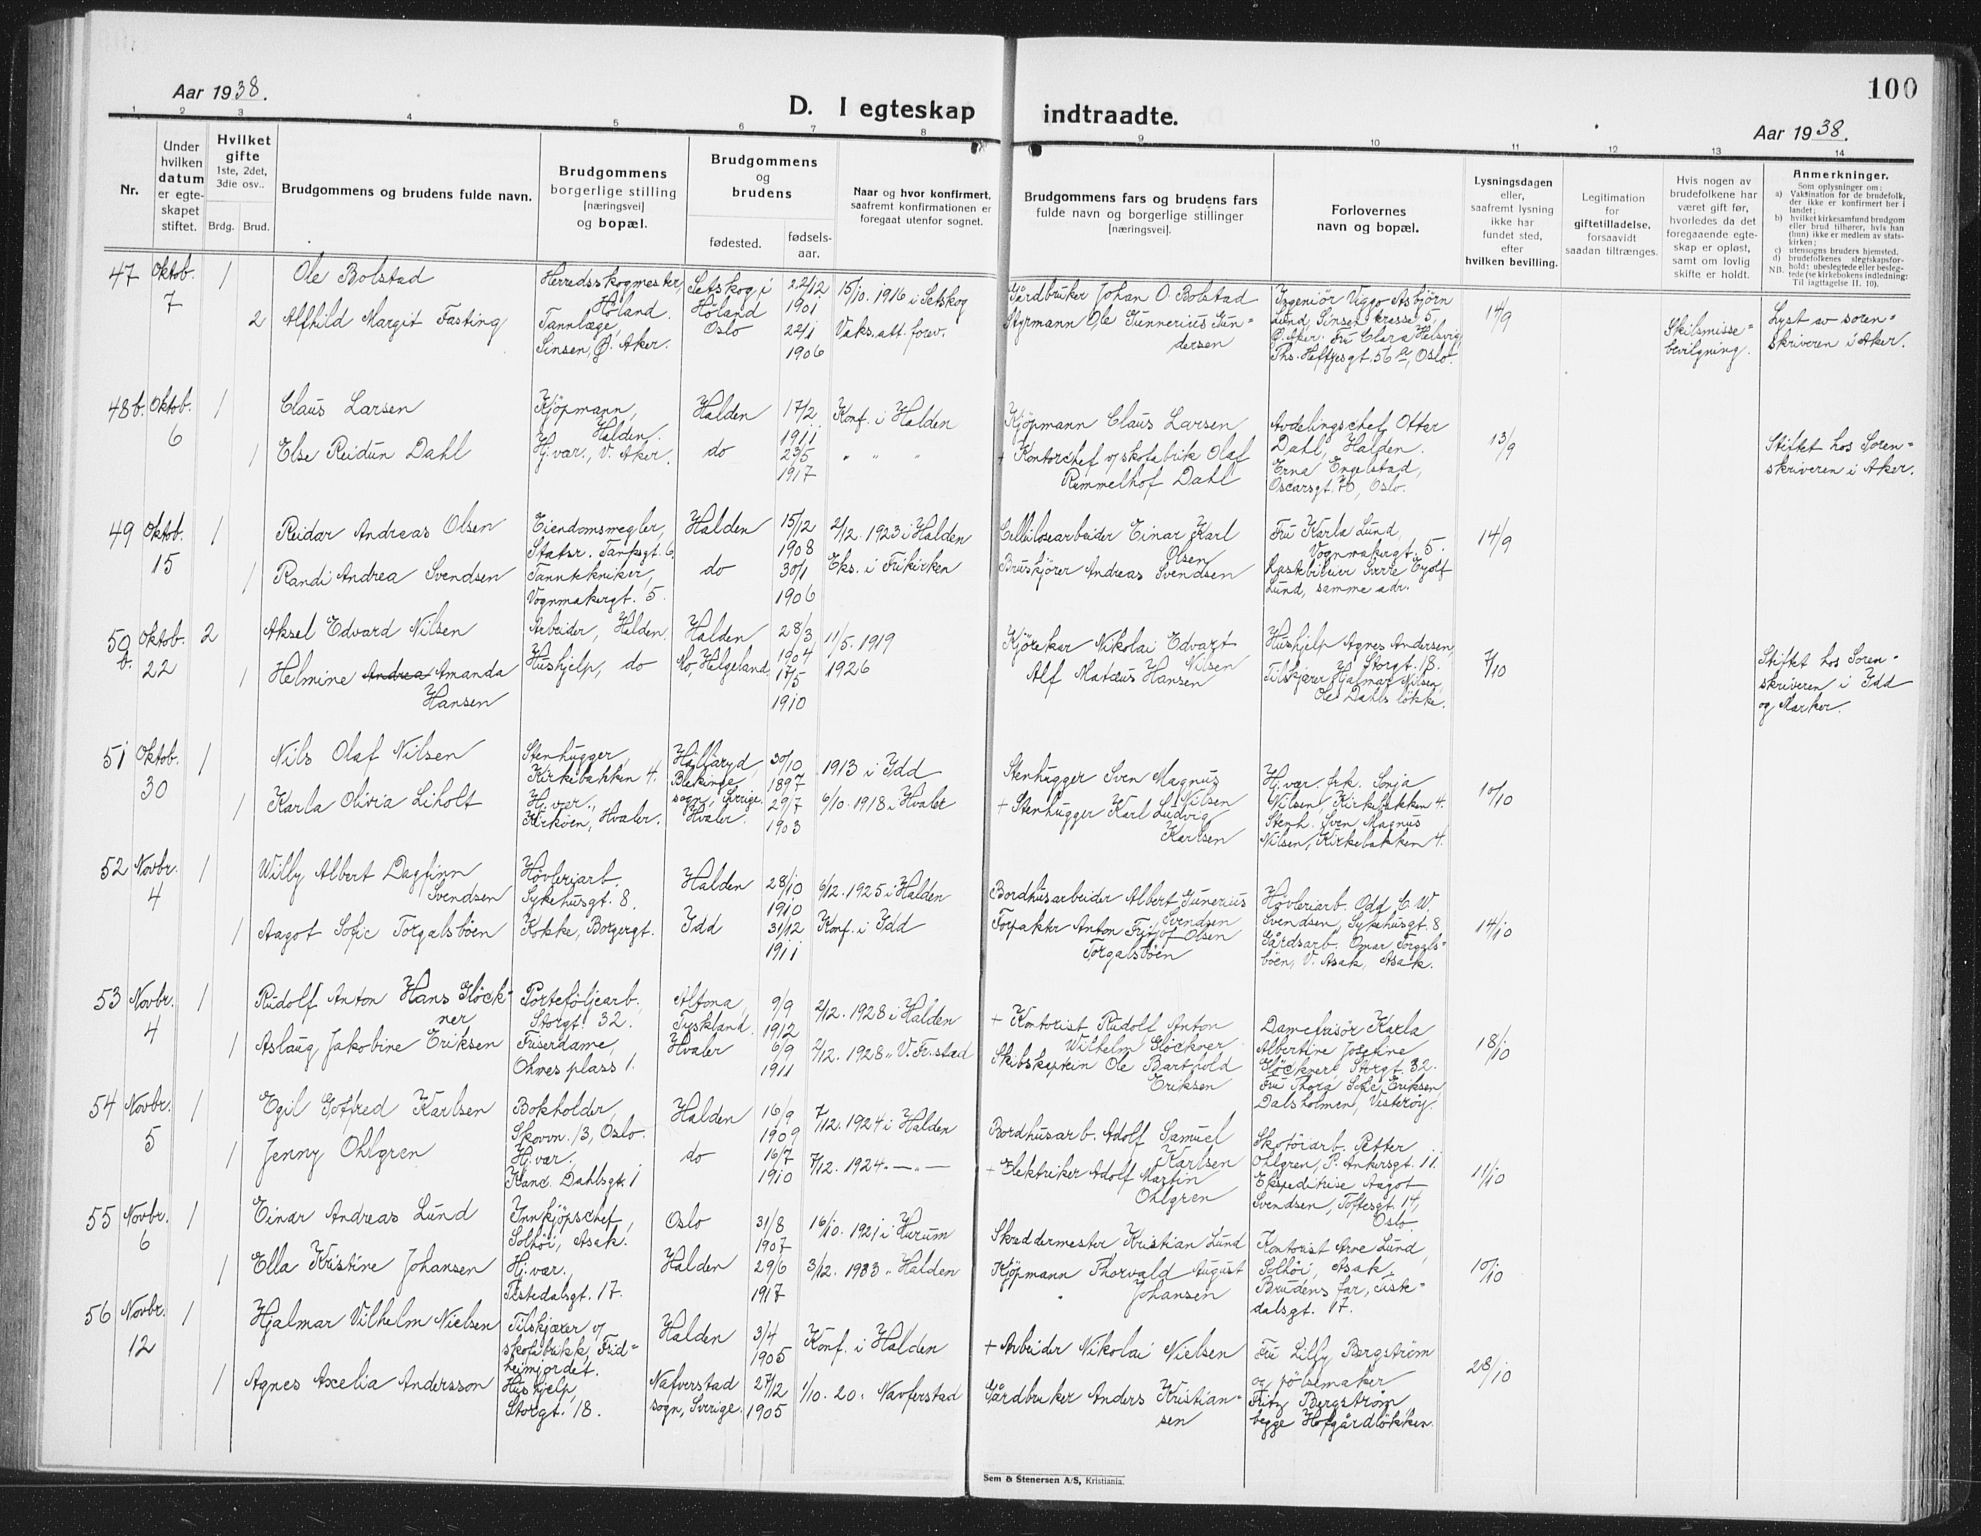 Aar 1938.
D. I egteskap indtraadte.
100
Aar 1938.
1 2 3 4 5 6 7 8 9 10 11 12 13 14
Nr.
Under hvilken datum er egteskapet stiftet.
Hvilket gifte
1ste, 2det, 3die osv..
Brdg. Brud.
Brudgommens og brudens fulde navn.
Brudgommens borgerlige stilling [næringsvei] og bopæl.
Brudgommens og brudens
fødested. fødselsaar.
Naar og hvor konfirmert, saafremt konfirmationen er foregaat utenfor sognet.
Brudgommens fars og brudens fars fulde navn og borgerlige stillinger [næringsvei].
Forlovernes navn og bopæl.
Lysningsdagen eller, saafremt lysning ikke har fundet sted, efter hvilken bevilling.
Legitimation for giftetilladelse. forsaavidt saadan tiltrænges.
Hvis nogen av brudefolkene har været gift før, hvorledes da det foregaaende egteskap er opløst, samt om lovlig skifte er holdt.
Anmerkninger.
Som oplysninger om:
a) Vaksination for de brudefolk, der ikke er konfirmert her i landet;
b) hvilket kirkesamfund brudgom eller brud tilhører, hvis han (hun) ikke er medlem av statskirken;
c) utensogns bruders hjemsted.
d) brudefolkenes slegtskapsforhold: ubeslegtede eller beslegtede (se kirkebokens indledning: Til iagttagelse II. 10).
NB.
47 Oktob. 7 1 Ole Bolstad Herredsskogmester, Høland. Setskog i Høland 22/12 1901 15/10. 1916 i Setskog Gårdbruker Johan O. Bolstad Ingeniør Viggo Asbjörn Lund, Sinsenkrasse 5, Ø. Aker. 14/9 Lyst av sorenskriveren i Aker.
2 Alfhild Margit Fasting Tannlæge, Sinsen, Ø. Aker. Oslo 22/1 1906 Vaks.att. forev. Styrmann Ole Gunnerius Gundersen Fru Clara Helsvig, Ths. Heftyesgt. 56 a, Oslo. Skilsmissebevilgning.
48 b. Oktob. 6 1 Claus Larsen Kjöpmann, Halden. Halden 17/2 1911 Konf. i Halden Kjöpmann Claus Larsen Avdelingschef Otter Dahl, Halden. 13/9 Stiftet hos Sorenskriveren i Aker.
1 Else Reidun Dahl Hj.vær., V. Aker. do 23/5 1917 " " " + Kontorchef v/ skofabrik Olaf Remmelhof Dahl Erna Engelstad, Oscarsgt. 70, Oslo.
49 Oktob. 15 1 Reidar Andreas Olsen Eiendomsmegler, Statsr. Tanksgt. 6 Halden 15/12 1908 2/12. 1923 i Halden Cellulosearbeider Einar Karl Olsen Fru Karla Lund, Vognmakergt. 5. 14/9
1 Randi Andrea Svendsen Tanntekniker, Vognmakergt. 5. do 30/1 1906 Eks. i Frikirken Bruskjører Andreas Svendsen Lastebileier Sverre Eyolf Lund, samme adr.
50 b. Oktob. 22 2 Aksel Edvard Nilsen Arbeider, Halden. Halden 28/3 1904 11/5. 1919 Kjörekar Nikolai Edvart Nilsen Hushjelp Agnes Andersen, Storgt. 18. 7/10 Stiftet hos Sorenskriveren i Idd og Marker.
1 Helmine Andrea Amanda Hansen Hushjelp, do No, Helgeland 17/5 1910 1926 Alf Matæus Hansen Tilskjærer Hjalmar Nilsen, Ole Dahls løkke.
51 Oktob. 30 1 Nils Olaf Nilsen Stenhugger, Kirkebakken 4. Hällaryd, Blekinge sogn, Sverige. 30/10 1897 1913 i Idd Stenhugger Sven Magnus Nilsen Hj.vær. frk. Sonja Nilsen, Kirkebakken 4. 10/10
1 Karla Olivia Liholt Hj.vær., Kirkøen, Hvaler. Hvaler. 29/7 1903 6/10. 1918 i Hvaler + Stenhugger Karl Ludvig Karlsen Stenh. Sven Magnus Nilsen, Kirkebakken 4.
52 Novbr. 4 1 Willy Albert Dagfinn Svendsen Høvleriarb. Sykehusgt. 8. Halden 28/10 1910 6/12. 1925 i Halden Bordhusarbeider Albert Gunerius Svendsen Høvleriarb. Odd C. W Svendsen, Sykehusgt. 8 14/10
1 Aagot Sofie Torgalsböen Kokke, Borgergt. Idd 31/12 1911 Konf. i Idd Forpakter Anton Fritjof Olsen Torgalsböen Gårdsarb. Omar Torgalsböen, V. Asak, Asak.
53 Novbr. 4 1 Rudolf Anton Hans Glöckner Porteföljearb., Storgt. 32. Altona, Tyskland. 9/9 1912 2/12. 1928 i Halden + Kontorist Rudolf Anton Wilhelm Glöckner Damefrisør Karla Albertine Josefine Glöckner, Storgt. 32. 18/10
1 Aslaug Jakobine Eriksen Friserdame, Olives plass 1. Hvaler 6/9 1911 2/12. 1928 " V. Fr.stad Skibskaptein Ole Barthold Eriksen Fru Thora Sofie Eriksen, Dalsholmen, Vesterøy.
54 Novbr. 5 1 Egil Gotfred Karlsen Bokholder, Skovvn. 13, Oslo. Halden 16/9 1909 7/12. 1924 i Halden Bordhusarb. Adolf Samuel Karlsen Skotöiarb. Petter Ohlgren, P. Ankersgt. 11. 11/10
1 Jenny Ohlgren Hj.vær, Kanc. Dahlsgt. 1 do 16/7 1910 7/12. 1924 — " — + Elektriker Adolf Martin Ohlgren Ekspeditrise Aagot Svendsen, Toftesgt. 14, Oslo.
55 Novbr. 6 1 Einar Andreas Lund Innkjöpschef, Solhöi, Asak. Oslo 31/8 1907 16/10. 1921 i Hurum Skreddermester Kristian Lund Kontorist Arve Lund, Solhöi, Asak. 10/10
1 Ella Kristine Johansen Hj.vær., Tistedalsgt. 17. Halden 29/6 1917 3/12. 1933 " Halden Kjöpmann Thorvald August Johansen Brudens far, Tistedalsgt. 17.
56 Novbr. 12 1 Hjalmar Vilhelm Nielsen Tilskjærer v/ skofabrikk, Fridheimjordet. Halden 3/4 1905 Konf. i Halden + Arbeider Nikolai Nielsen Fru Lilly Bergström og pölsemaker 28/10
1 Agnes Axelia Andersson Hushjelp, Storgt. 18. Nafverstad sogn, Sverige. 27/12 1905 1/10. 20. Navferstad Gårdbruker Anders Kristiansen Fritz Bergström begge Hofgårdlökken.
Sem & Stenersen A/S, Kristiania.